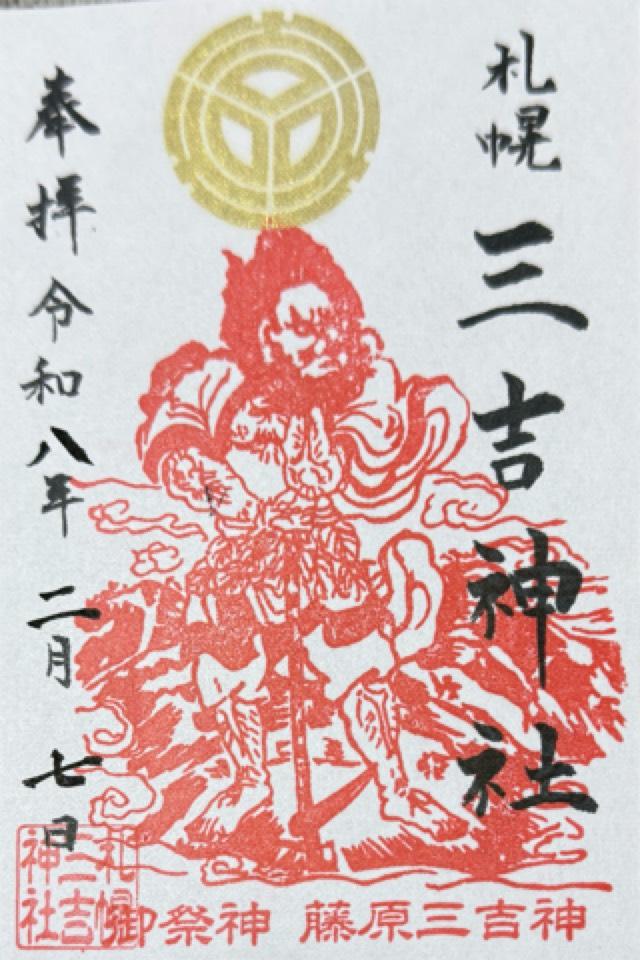 札幌三吉神社
奉拝令和八年二月七日
札幌
三吉
神社
御祭神 藤原三吉神